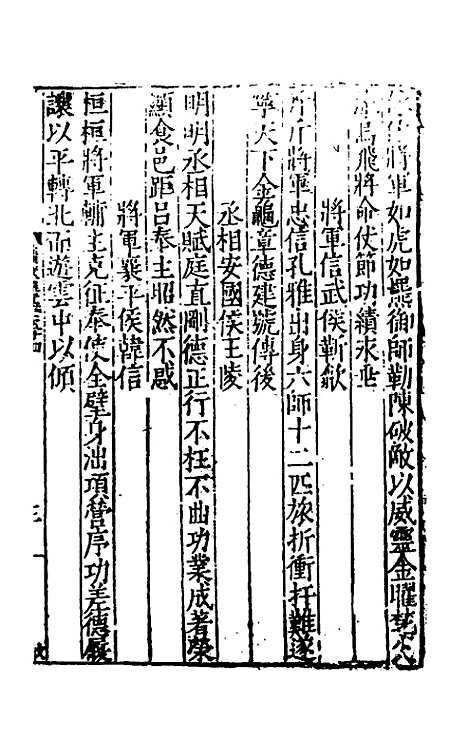 將軍如虎如羆御師勒陳破敵以威靈金曜楚
馬飛將命仗節功績永垂
將軍信武侯靳歙
將軍忠信孔雅出身六師十二匹旅折衝扞難遂
寧天下金龜章德建號傳後
丞相安國侯王陵
明明丞相天賦庭直剛德正行不枉不曲功業成著榮
顯食邑距呂奉主昭然不惑
將軍襄平侯韓信
桓桓將軍輔主克征奉使全璧身泏項營序功差德履
讓以平轉北而遊雲中以傾